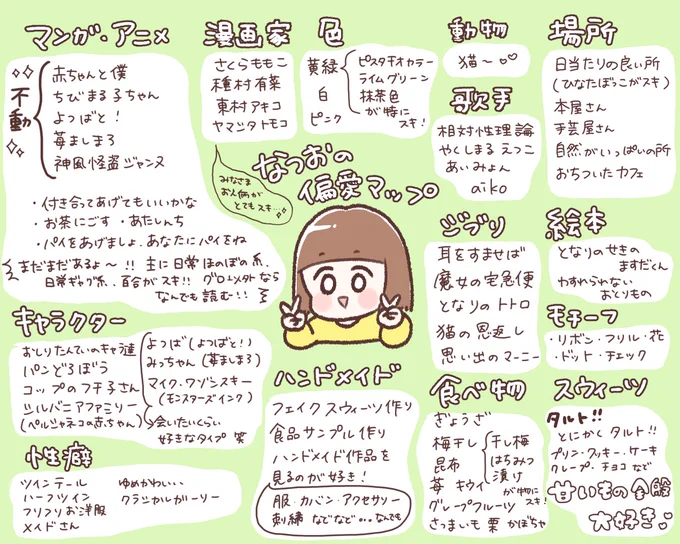 マンガ・アニメ
不動
赤ちゃんと僕
ちびまる子ちゃん
よつばと!
苺ましまろ
神風怪盗ジャンヌ
・付き合ってあげてもいいかな
・お茶にごす ・あたしんち
・パイをあげましょ、あなたにパイをね
まだまだあるよ〜!! 主に日常ほのぼの系、
日常ギャグ系、百合がスキ!! グロ以外なら
なんでも読む!!
漫画家
さくらももこ
種村有菜
東村アキコ
ヤマシタトモコ
みなさま
お人柄が
とてもスキ…
色
黄緑
ピスタチオカラー
ライムグリーン
抹茶色
が特に
スキ!
白
ピンク
動物
猫〜♡♡
歌手
相対性理論
やくしまるえつこ
あいみょん
aiko
場所
日当たりの良い所
(ひなたぼっこがスキ)
本屋さん
手芸屋さん
自然がいっぱいの所
おちついたカフェ
なつおの
偏愛マップ
ジブリ
耳をすませば
魔女の宅急便
となりのトトロ
猫の恩返し
思い出のマーニー
絵本
となりのせきの
ますだくん
わすれられない
おくりもの
モチーフ
・リボン・フリル・花
・ドット・チェック
キャラクター
おしりたんていのキャラ達
パンどろぼう
コップのフチ子さん
シルバニアファミリー
(ペルシャネコの赤ちゃん)
よつば(よつばと!)
みっちゃん(苺ましまろ)
マイク・ワゾンスキー
(モンスターズインク)
会いたいくらい
好きなタイプ 笑
ハンドメイド
フェイクスウィーツ作り
食品サンプル作り
ハンドメイド作品を
見るのが好き!
服・カバン・アクセサリー
刺繍 などなど…なんでも
食べ物
ぎょうざ
梅干し
干し梅
はちみつ
漬け
が特にスキ!
昆布
苺 キウイ
グレープフルーツ
さつまいも 栗 かぼちゃ
スウィーツ
タルト!!
とにかくタルト!!
プリン・クッキー・ケーキ
クレープ・チョコ など
甘いもの全般
大好き♡
性癖
ツインテール
ハーフツイン
フリフリお洋服
メイドさん
ゆめかわいい
クラシカルガーリー